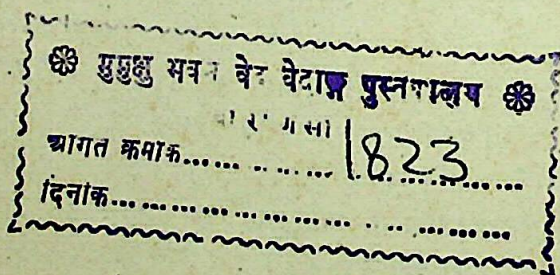 ❀ मुमुक्षु भवन वेद वेदाङ्ग पुस्तकालय ❀
वाराणसी
आगत क्रमाक..................1823............
दिनांक.............................................